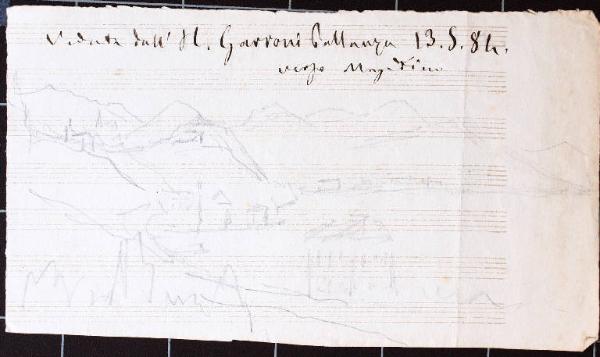 Veduta dall' H. Garroni Pallanza 13.5.84.
verso Magadino